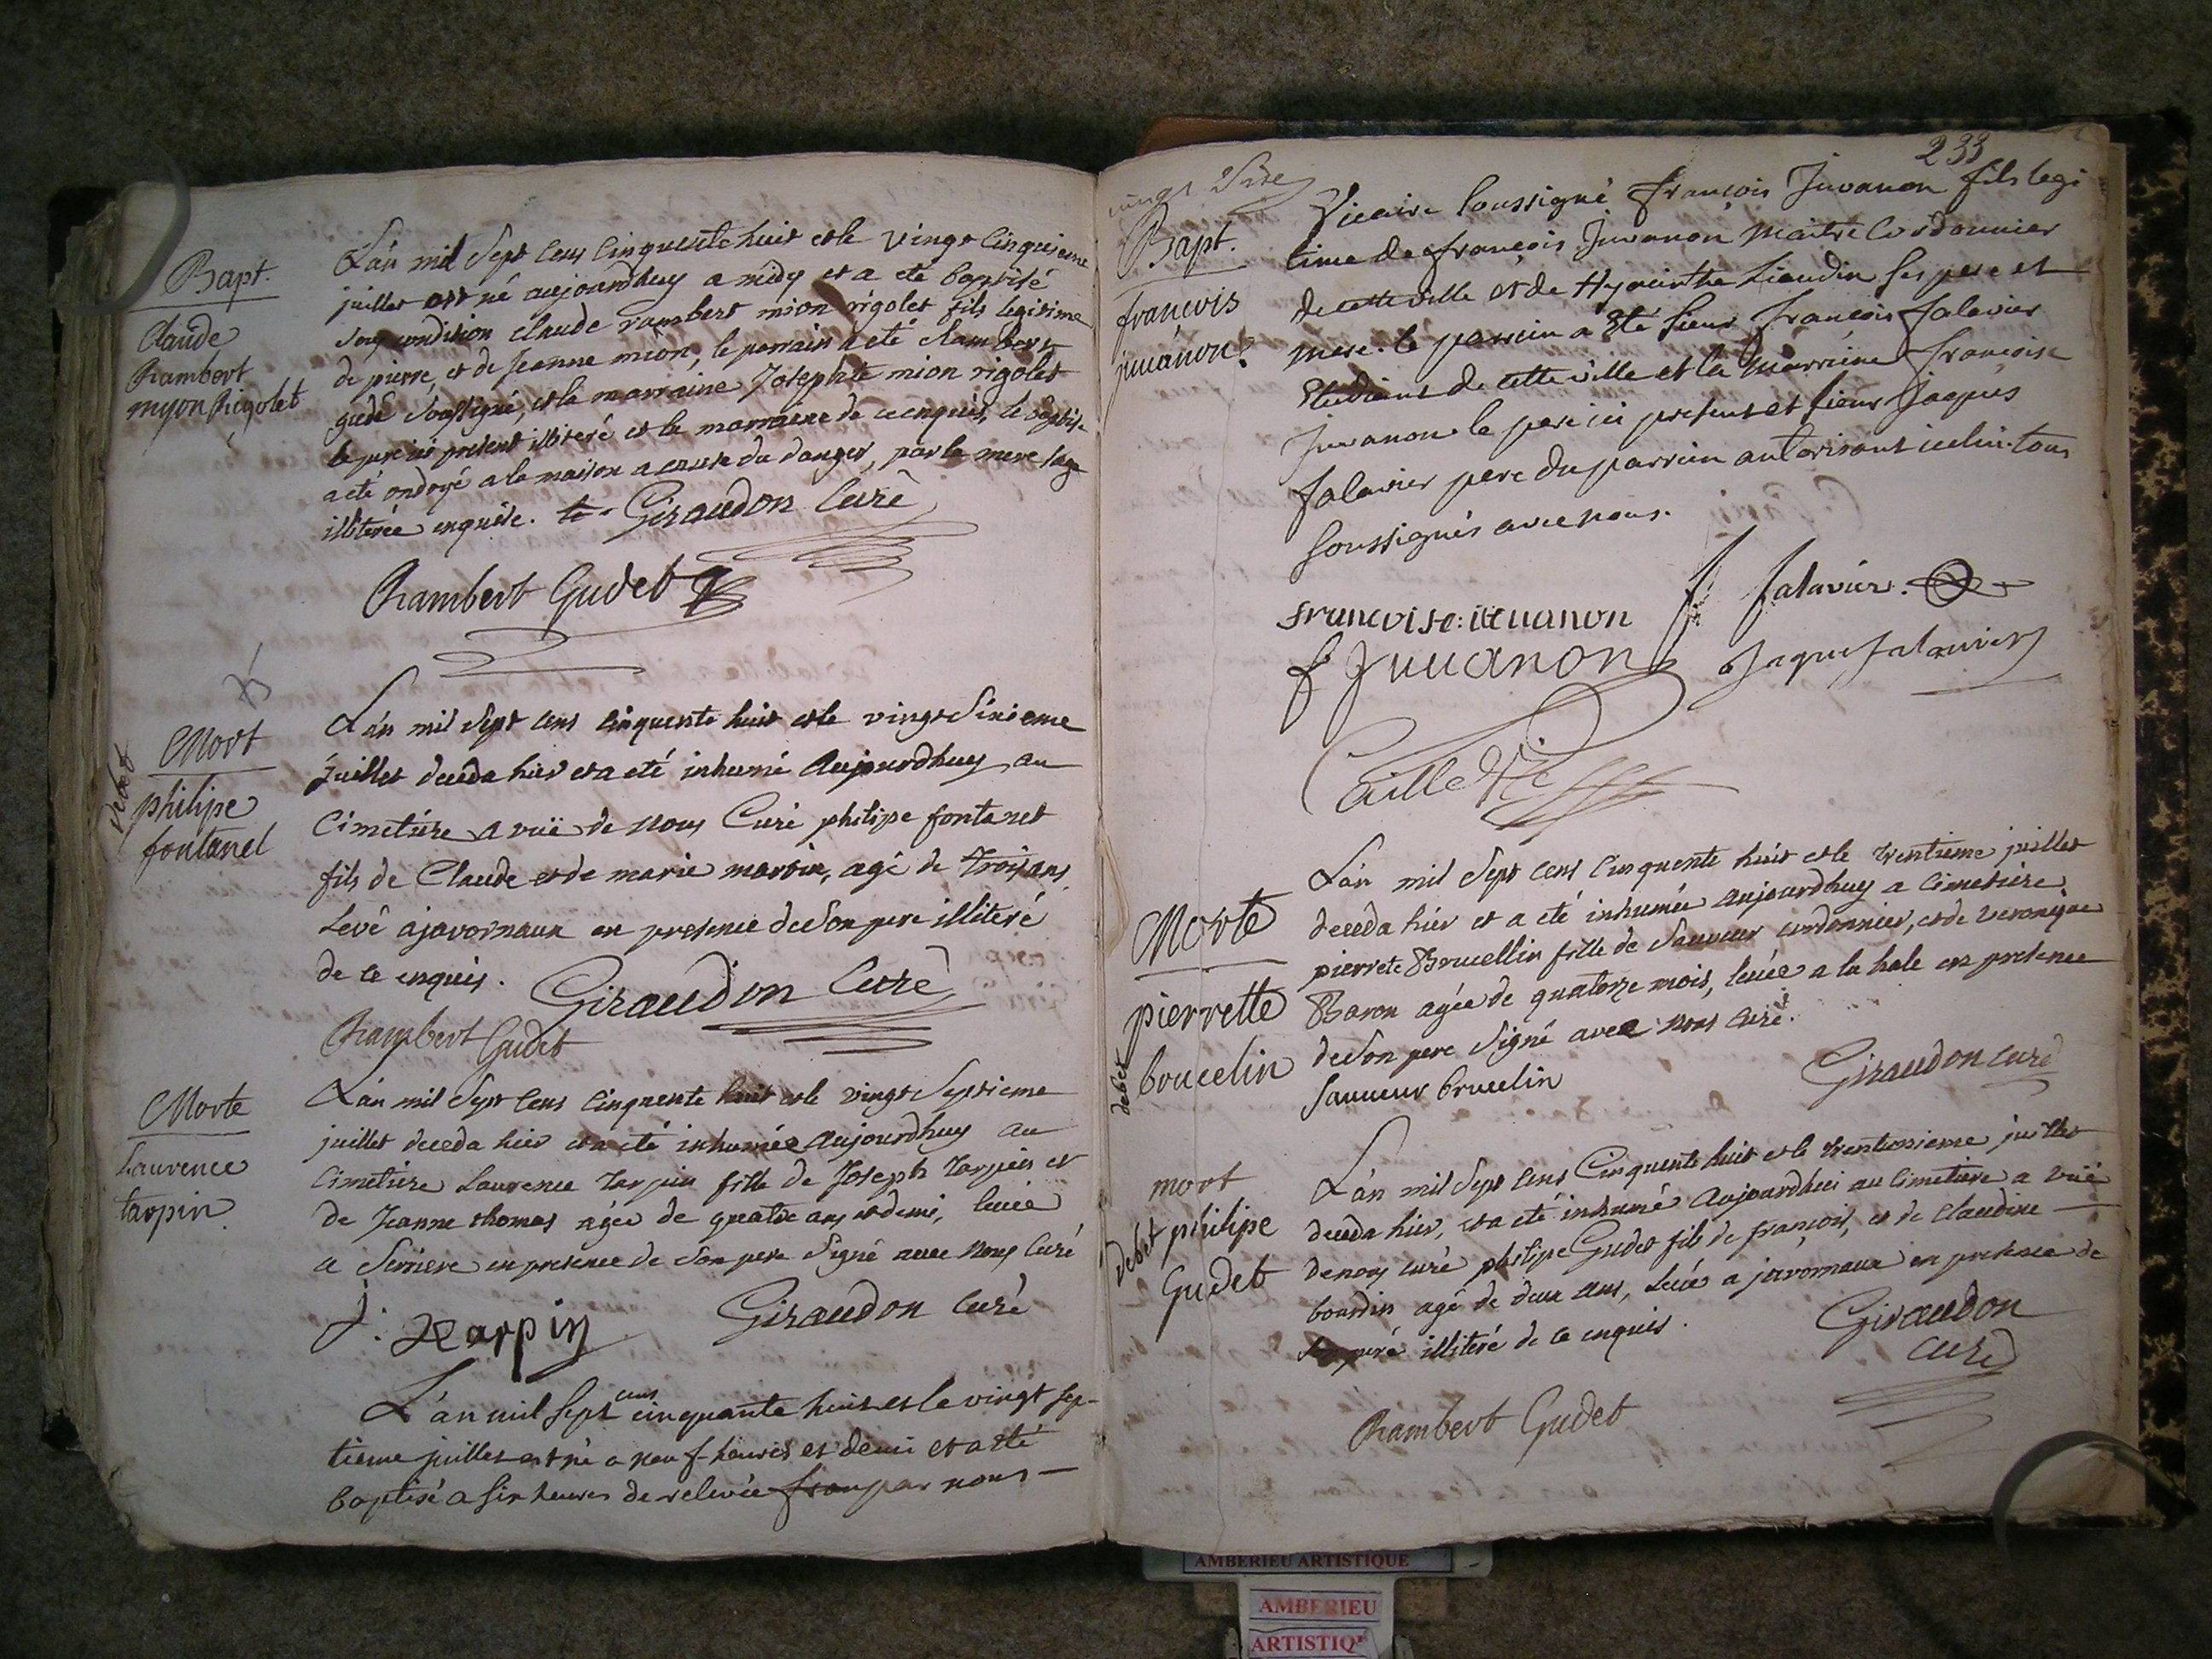 Bapt.
Claude
Rambert
myon Rigolet
L'an mil Sept Cens Cinquente huit et le vingt Cinquieme
juillet est né aujourdhuy a midy et a eté baptisé
Sous condition Claude rambert mion rigolet fils legitime
de pierre, et de Jeanne mion, le parrain a eté Rambert
gudet Soussigné, et la marraine Josephte mion rigolet
le pere ici present illiteré et la marraine de ce enquis, le baptisé
a eté ondoyé a la maison a cause du danger, par la mere sage
illiterée enquise. Giraudon Curé
Rambert Gudet
debet
Mort
philipe
fontanel
L'an mil Sept Cens Cinquente huit et le vingt Sixieme
juillet deceda hier et a eté inhumé Aujourdhuy au
Cimetiere a vuë de nous Curé philipe fontanet
fils de Claude et de marie martin, agé de trois ans
Levé a javornaux en presence de Son pere illiteré
de ce enquis. Giraudon Curé
Rambert Gudet
Morte
Laurence
tarpin
L'an mil Sept Cens Cinquente huit et le vingt Septieme
juillet deceda hier et a eté inhumée Aujourdhuy au
Cimetiere Laurence Tarpin fille de Joseph Tarpin et
de Jeanne thomas agée de quatre ans et demi, levée
a Serriere en presence de Son pere Signé avec nous Curé
J: Tarpin Giraudon Curé
L'an mil Sept cens cinquante huit et le vingt sep-
tieme juillet est né a neuf heures et demi et a eté
baptisé a six heures de relevée fran par nous
233
Bapt.
françois
juuanon
Vicaire soussigné françois Juvanon fils legi
time de françois Juvanon Maitre Cordonnier
de cette ville et de Hyacinthe Liaudin ses pere et
mere. le parrein a Eté sieur François falavier
Etudiant de cette ville et la Marreine françoise
Juvanon le pere ici present et sieur Jaques
falavier pere du parrein autorisant icelui. tous
soussignés avec nous.
francoise: iuuanon f falavier.
f Juuanon Jaque falauier
Caille Vic
debet
Morte
pierrette
bourcelin
L'an mil Sept Cens Cinquente huit et le trentieme juillet
deceda hier et a eté inhumée aujourdhuy a Cimetiere
pierrete Brucellin fille de Sauveur cordonnier, et de veronique
Baron agée de quatorze mois, levée a la hale en presence
de Son pere Signé avec nous Curé.
Sauueur brucelin Giraudon Curé
debet
mort
philipe
Gudet
L'an mil Sept Cens Cinquente huit et le trentunieme juillet
deceda hier, et a eté inhumé Aujourdhui au Cimetiere a vuë
de nous curé philipe Gudet fils de françois, et de Claudine
bourdin agé de deux ans, Levé a javornaux en presence de
Son peré illiteré de ce enquis. Giraudon
Curé
Rambert Gudet
AMBERIEU ARTISTIQUE
AMBERIEU
ARTISTIQ